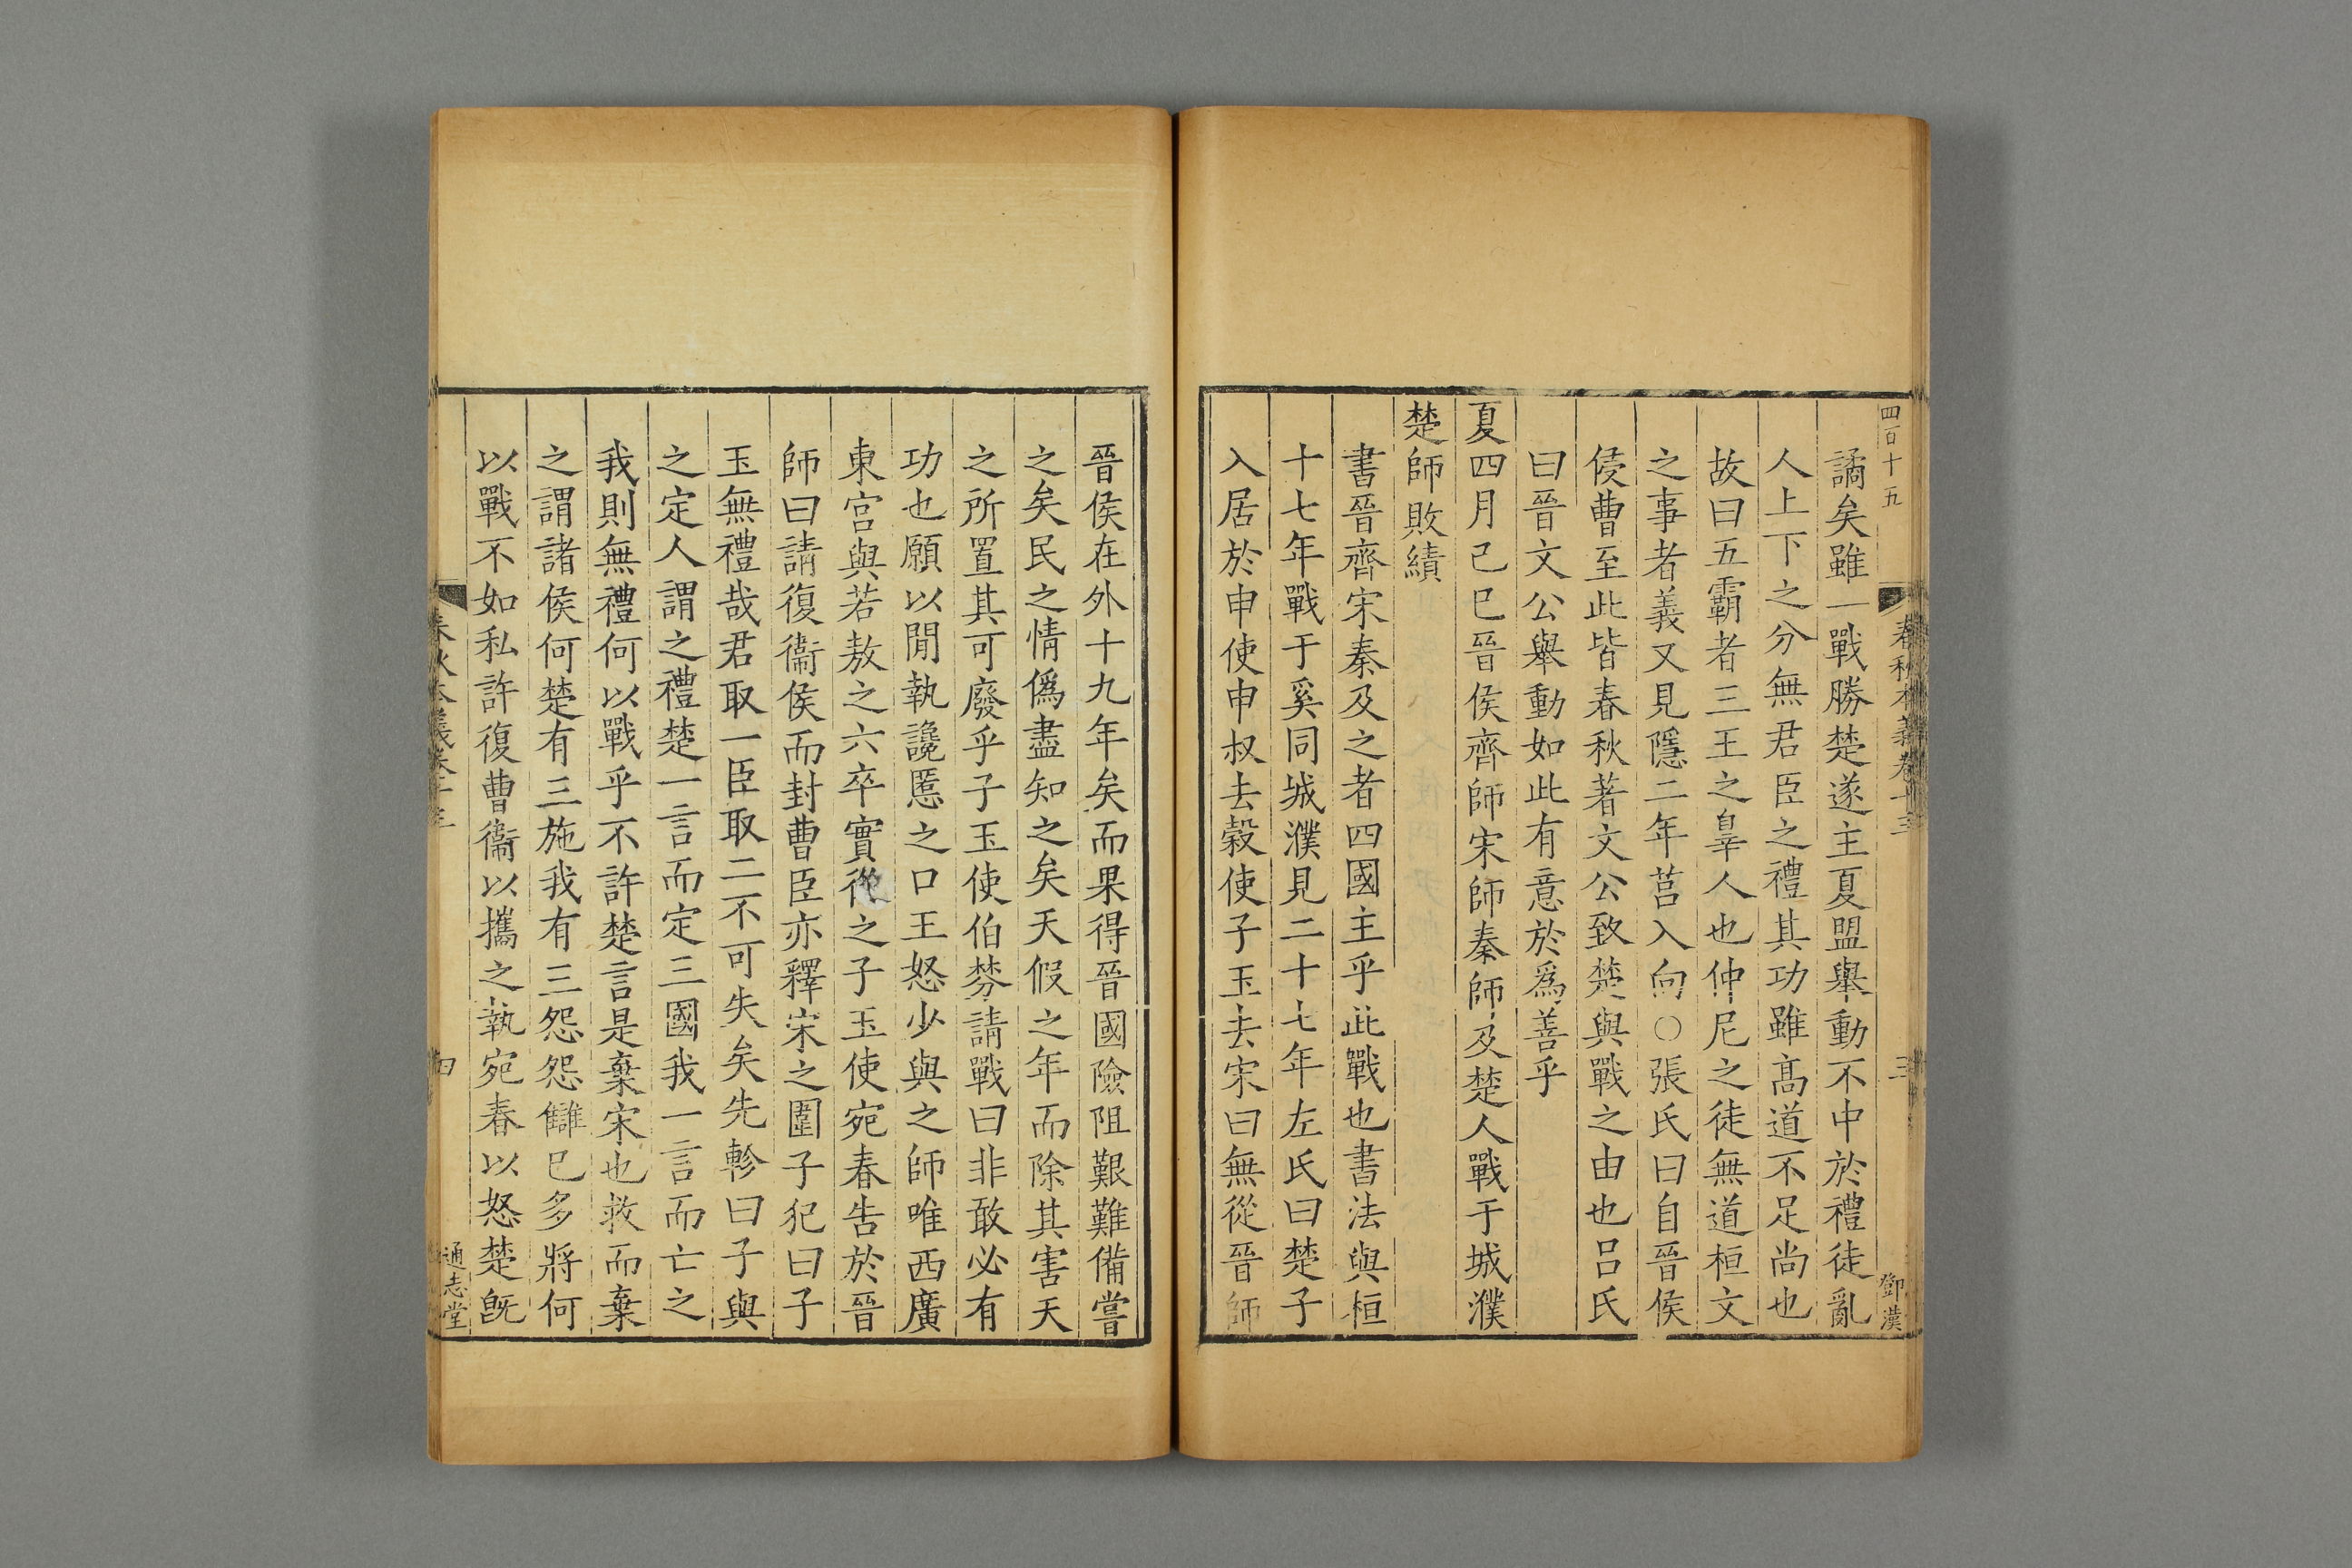 四百十五
春秋本義卷十三
三
鄧漢
譎矣雖一戰勝楚遂主夏盟舉動不中於禮徒亂
人上下之分無君臣之禮其功雖髙道不足尚也
故曰五霸者三王之辠人也仲尼之徒無道桓文
之事者義又見隱二年莒入向○張氏曰自晉侯
侵曹至此皆春秋著文公致楚與戰之由也吕氏
曰晉文公舉動如此有意於爲善乎
夏四月己巳晉侯齊師宋師秦師及楚人戰于城濮
楚師敗績
書晉齊宋秦及之者四國主乎此戰也書法與桓
十七年戰于奚同城濮見二十七年左氏曰楚子
入居於申使申叔去穀使子玉去宋曰無從晉師
晉侯在外十九年矣而果得晉國險阻艱難備嘗
之矣民之情僞盡知之矣天假之年而除其害天
之所置其可廢乎子玉使伯棼請戰曰非敢必有
功也願以閒執讒慝之口王怒少與之師唯西廣
東宫與若敖之六卒實從之子玉使宛春告於晉
師曰請復衞侯而封曹臣亦釋宋之圍子犯曰子
玉無禮哉君取一臣取二不可失矣先軫曰子與
之定人謂之禮楚一言而定三國我一言而亡之
我則無禮何以戰乎不許楚言是棄宋也救而棄
之謂諸侯何楚有三施我有三怨怨讎已多將何
以戰不如私許復曹衞以攜之執宛春以怒楚旣
春秋本義卷十三
四
通志堂